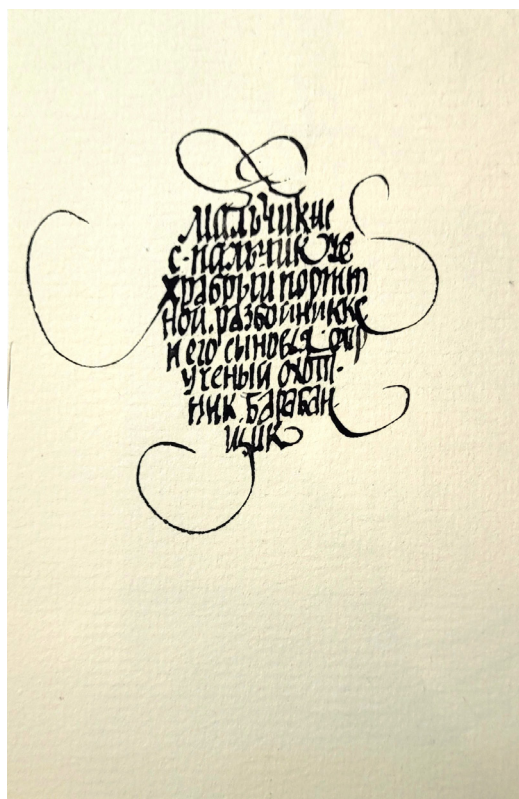 мальчик не
с-пальчик че
храбрый портн
ной. разбойник
и его сыновья
ученый охот-
ник. барабан
щик